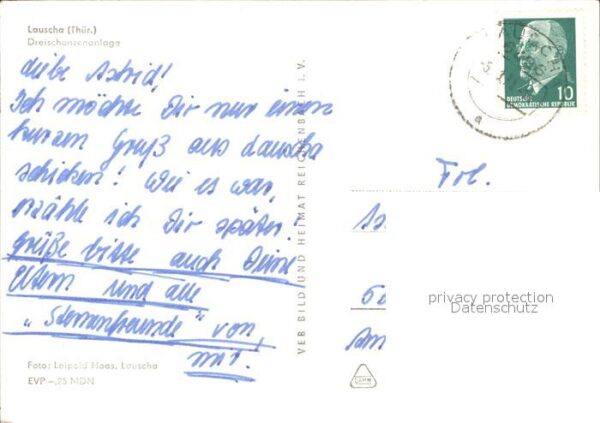 Lauscha (Thür.)
Dreischanzenanlage
Liebe Astrid!
Ich möchte Dir nur einen
kurzen Gruß aus Lauscha
schicken! Wie es war,
erzähle ich Dir später!
Grüße bitte auch Deine
Eltern und alle
„Sternenfreunde" von
mir.
Foto: Leipold Haas, Lauscha
EVP –,25 MDN
VEB BILD UND HEIMAT REICHENBACH I. V.
10
DEUTSCHE
DEMOKRATISCHE REPUBLIK
Frl.
privacy protection
Datenschutz